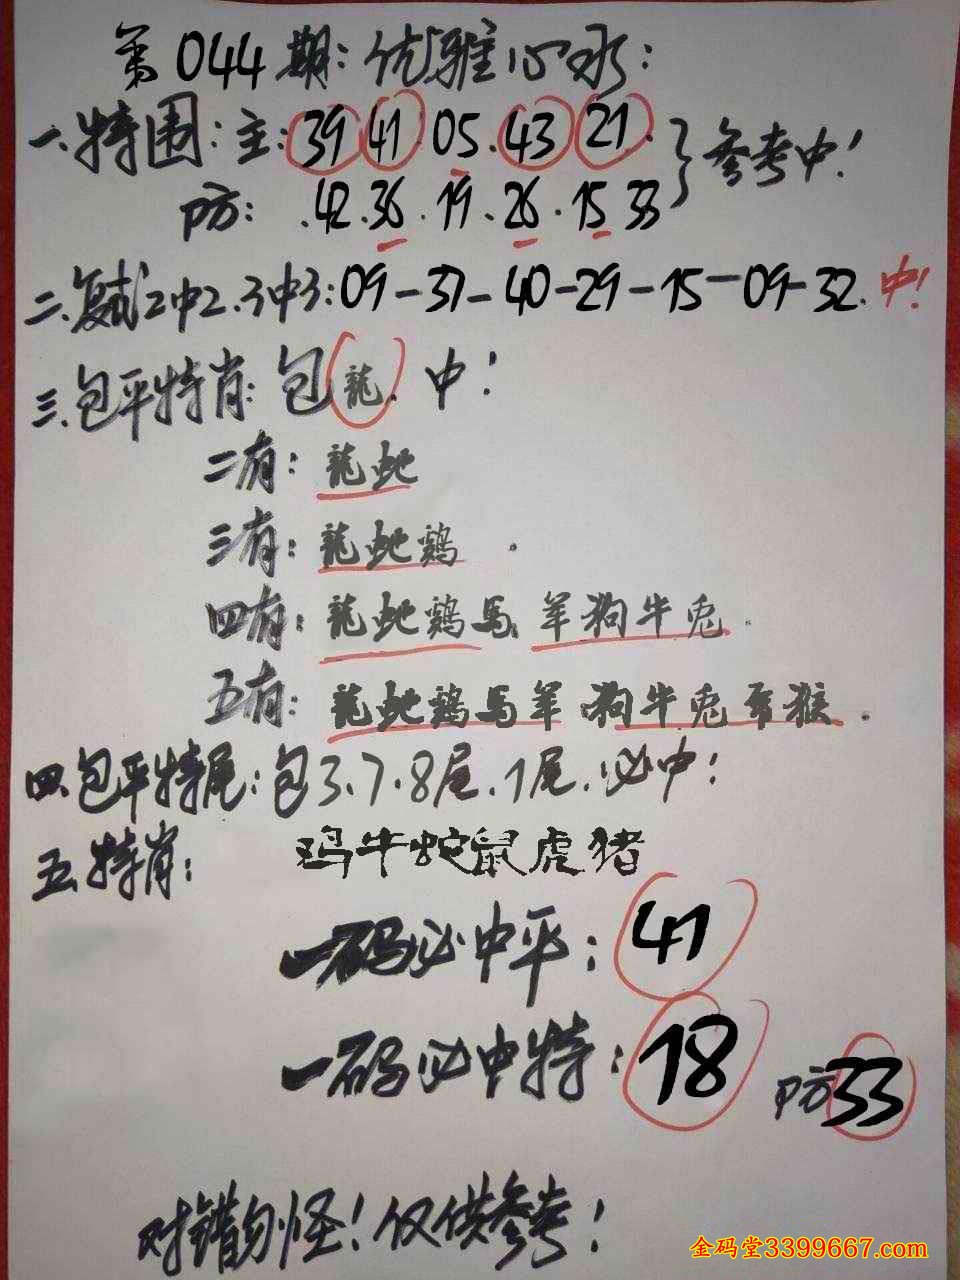 第044期：优雅心水：
一.特围：主：39 41 05.43 21.
防：.42.36.19.26.15 33
参考中！
二.复式2中2.3中3：09-37-40-29-15-09-32.中！
三.包平特肖：包龍.中！
二有：龍蛇
三有：龍蛇鶏.
四有：龍蛇鶏馬羊狗牛兎.
五有：龍蛇鶏馬羊狗牛兎 猴.
四.包平特尾：包3.7.8尾.1尾.必中！
五.特肖：鸡牛蛇鼠虎猪
一码必中平：41
一码必中特：18 防33
对错勿怪！仅供参考！
金码堂3399667.com